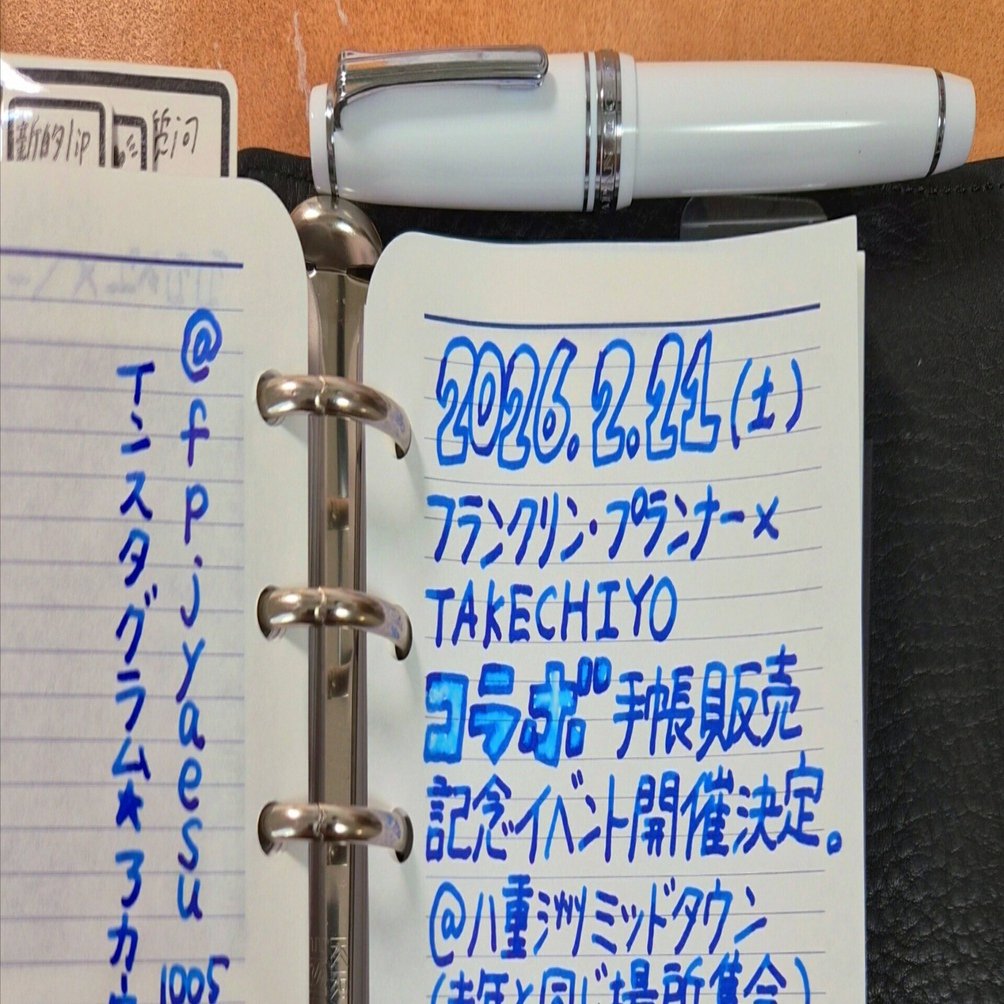 2026.2.21(土)
フランクリン・プランナー×
TAKECHIYO
コラボ手帳販売
記念イベント開催決定。
@八重洲ミッドタウン
(去年と同じ場所集合)
@fpjyaesu
1005
インスタグラム★3カ
新的
质问